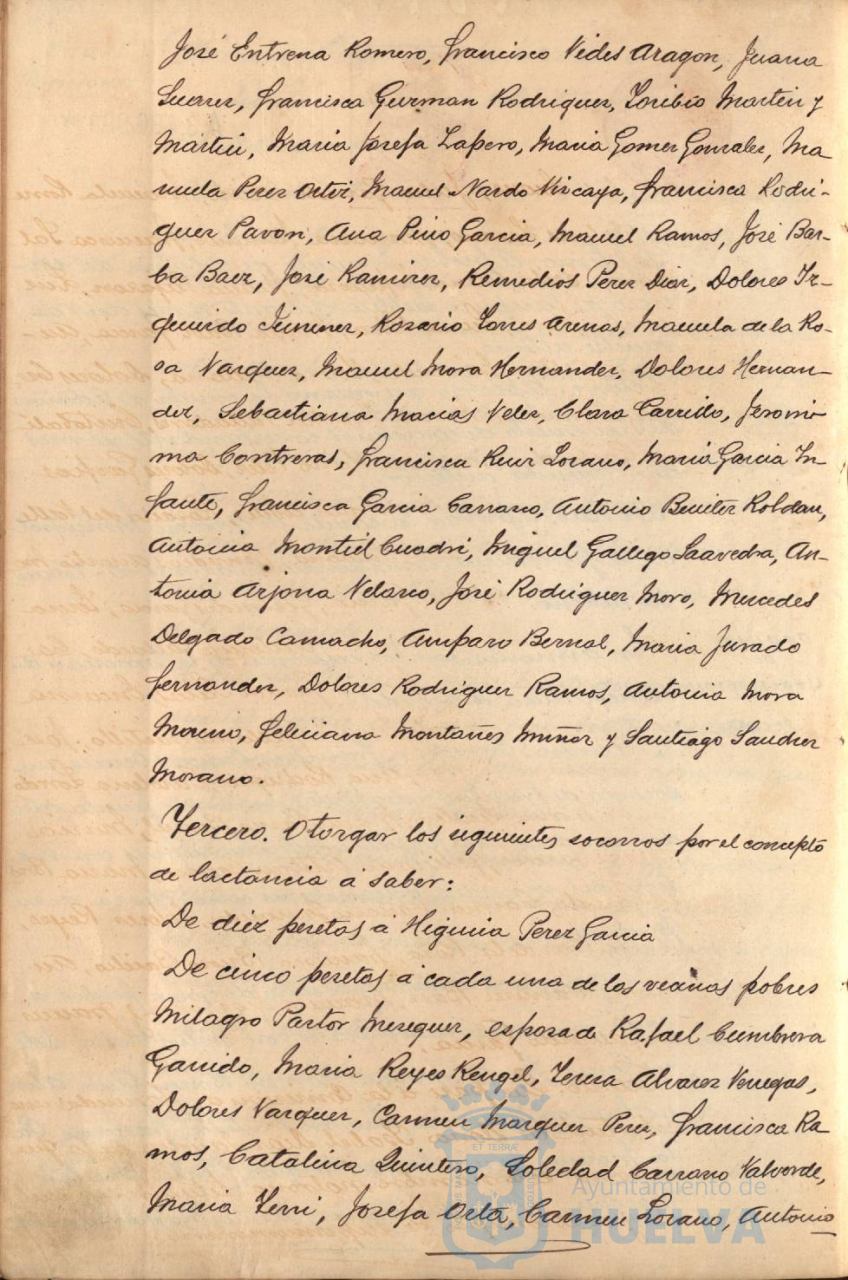 José Entrena Romero, Francisco Vides Aragon, Juana
Suarez, Francisca Guzman Rodriguez, Toribio Martin y
Martin, Maria Josefa Zapero, Maria Gomez Gonzalez, Ma
nuela Perez Ortiz, Manuel Nardo Vizcaya, Francisca Rodri-
guez Pavon, Ana Pino Garcia, Manuel Ramos, José Bar-
ba Baez, José Ramirez, Remedios Perez Diaz, Dolores Iz-
quierdo Jimenez, Rosario Torres Arenas, Manuela de la Ro-
sa Vazquez, Manuel Mora Hernandez, Dolores Hernan-
dez, Sebastiana Macias Velez, Clara Carrido, Jeroni
ma Contreras, Francisca Ruiz Lozano, Maria Garcia In-
fante, Francisca Garcia Carrasco, Antonio Benitez Roldan,
Antonia Montiel Cuadri, Miguel Gallego Saavedra, An-
tonia Arjona Velasco, José Rodriguez Moro, Mercedes
Delgado Camacho, Amparo Bernal, Maria Jurado
Fernandez, Dolores Rodriguez Ramos, Antonia Mora
Moreno, Feliciana Montañes Muñoz y Santiago Sanchez
Morano.
Tercero. Otorgar los siguientes socorros por el concepto
de lactancia á saber:
De diez pesetas á Higinia Perez Garcia
De cinco pesetas á cada una de las vecinas pobres
Milagro Pastor Meseguer, esposa de Rafael Cumbrera
Garrido, Maria Reyes Rengel, Teresa Alvarez Venegas,
Dolores Vazquez, Carmen Marquez Perez, Francisca Ra
mos, Catalina Quintero, Soledad Carrasco Valverde,
Maria Terri, Josefa Orta, Carmen Lozano, Antonio
ET TERRÆ
Ayuntamiento de
HUELVA